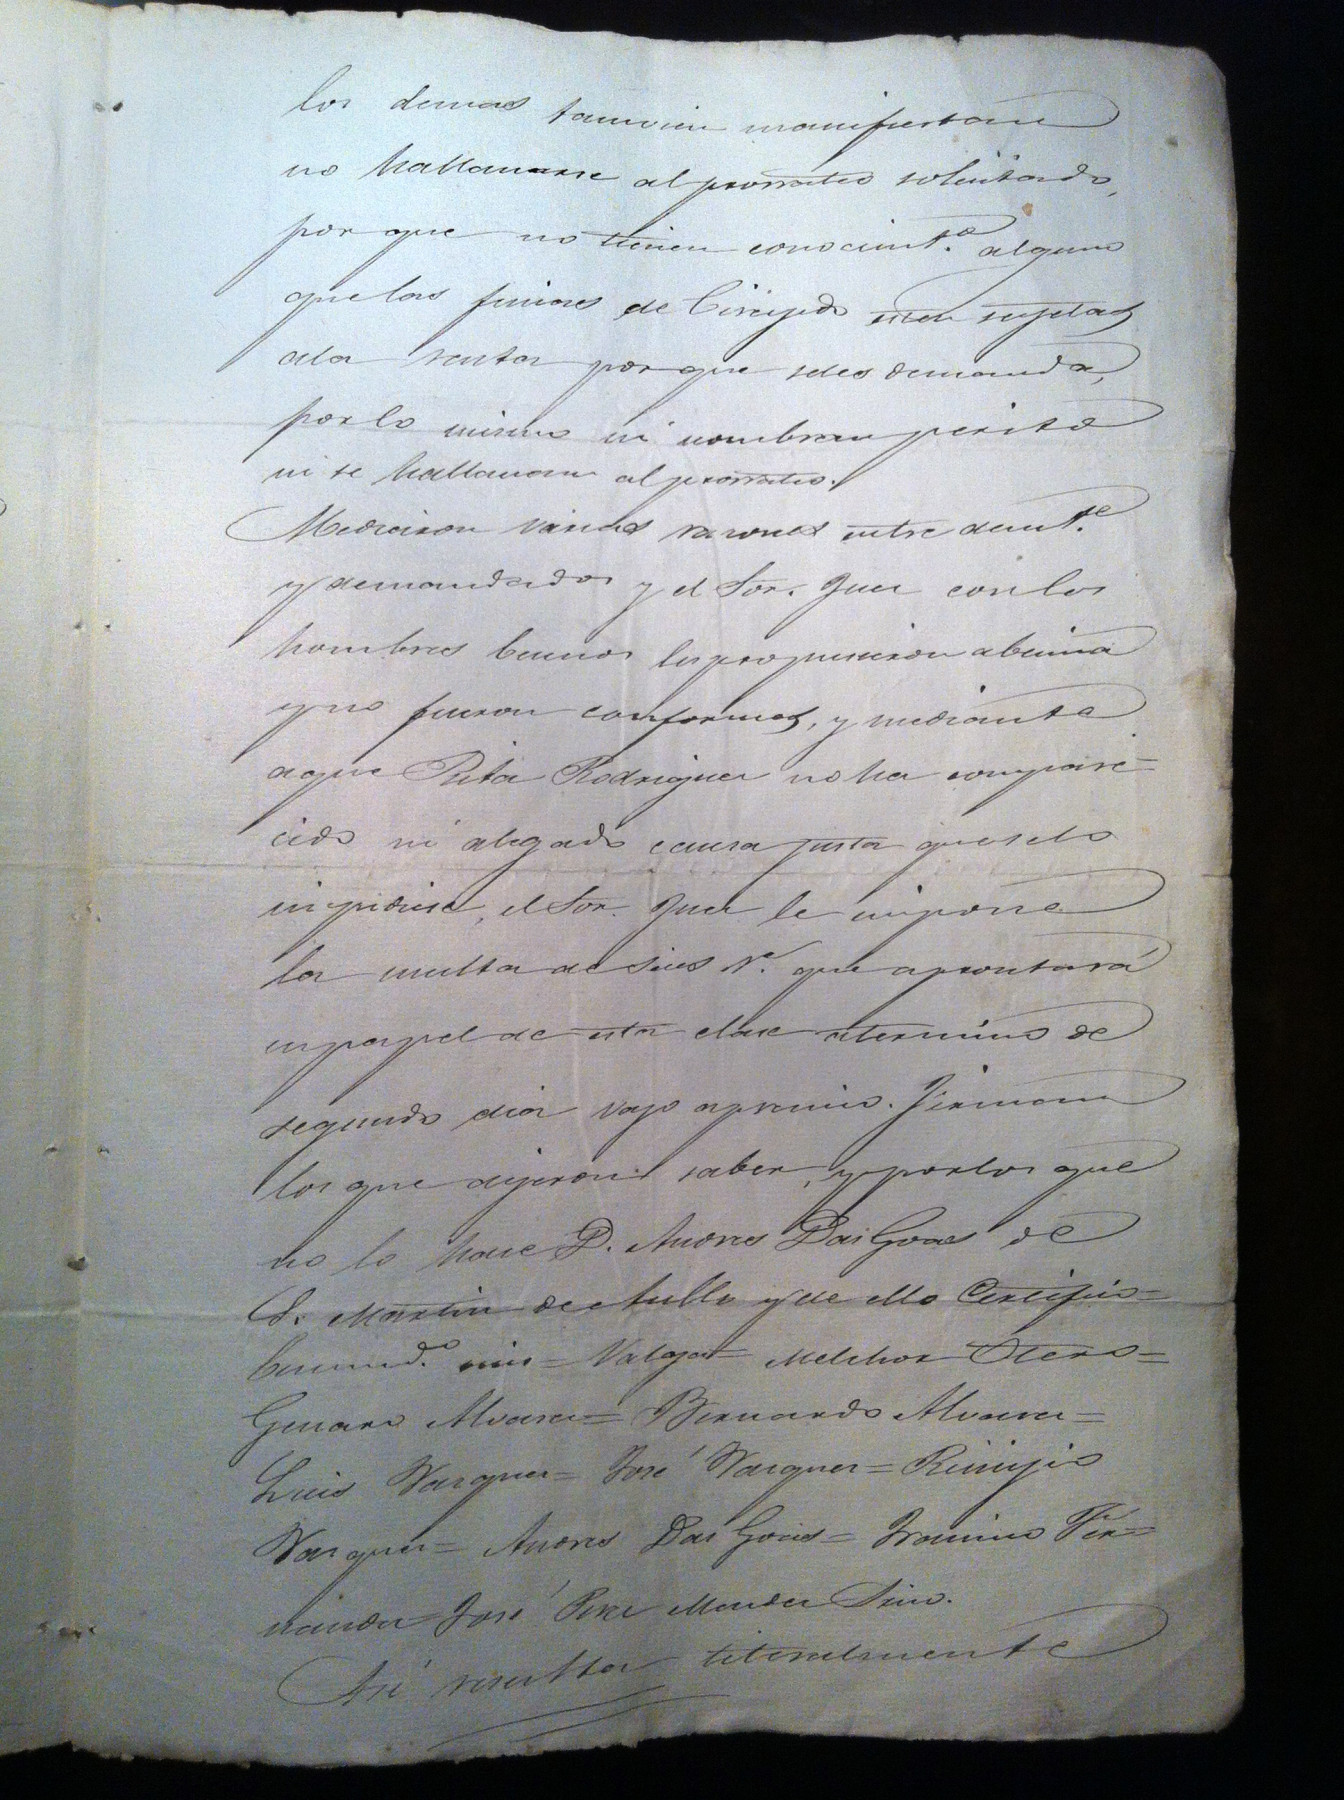 los demas tamvien manifiestan
no hallanarse al prorrateo solicitado,
por que no tienen conocimt.º alguno
que las fincas de esten sugetas
a la renta por que seles demanda,
por lo mismo ni nombran perito
ni se hallanan al prorrateo.
Mediaron varias razones entre demt.e
y demandados y el Sor. Juez con los
hombres buenos les propusieron abenia
y no fueron conformes, y mediante
a que Rita Rodriguez no ha compare=
cido ni alegado causa justa que selo
impidiese, el Sor. Juez le impone
la multa de seis r.s que aprontará
en papel de esta clase a termino de
segundo dia vajo apremio. Firman
los que dijeron saber, y por los que
no lo hace D. Andres Das Goas de
S. Martin de y de ello Certifico=
Enmend.º = Melchor Otero=
Genaro Alvarez= Bernardo Alvarez=
Luis Vazquez= José Vazquez= Remigio
Vazquez= Andres Das Goas= Fer=
nandez= José Perez Mendez Srio.
Así resulta literalmente